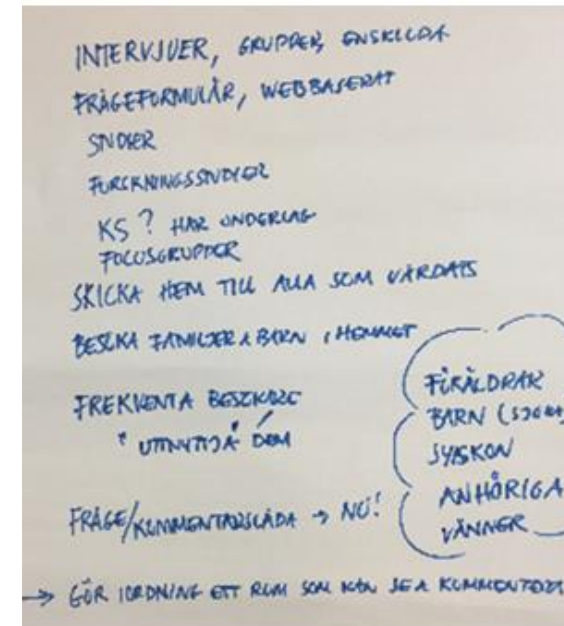 INTERVJUER, GRUPPER, ENSKILDA
FRÅGEFORMULÄR, WEBBASERAT
STUDIER
FORSKNINGSSTUDIER
KS? HAR UNDERLAG
FOCUSGRUPPER
SKICKA HEM TILL ALLA SOM VÅRDATS
BESÖKA FAMILJER & BARN I HEMMET
FREKVENTA BESÖKARE
"UTNYTTJA" DOM
FRÅGE/KOMMENTARSLÅDA → NU!
FÖRÄLDRAR
BARN (SJUKA)
SYSKON
ANHÖRIGA
VÄNNER
→ GÖR IORDNING ETT RUM SOM KAN SE &